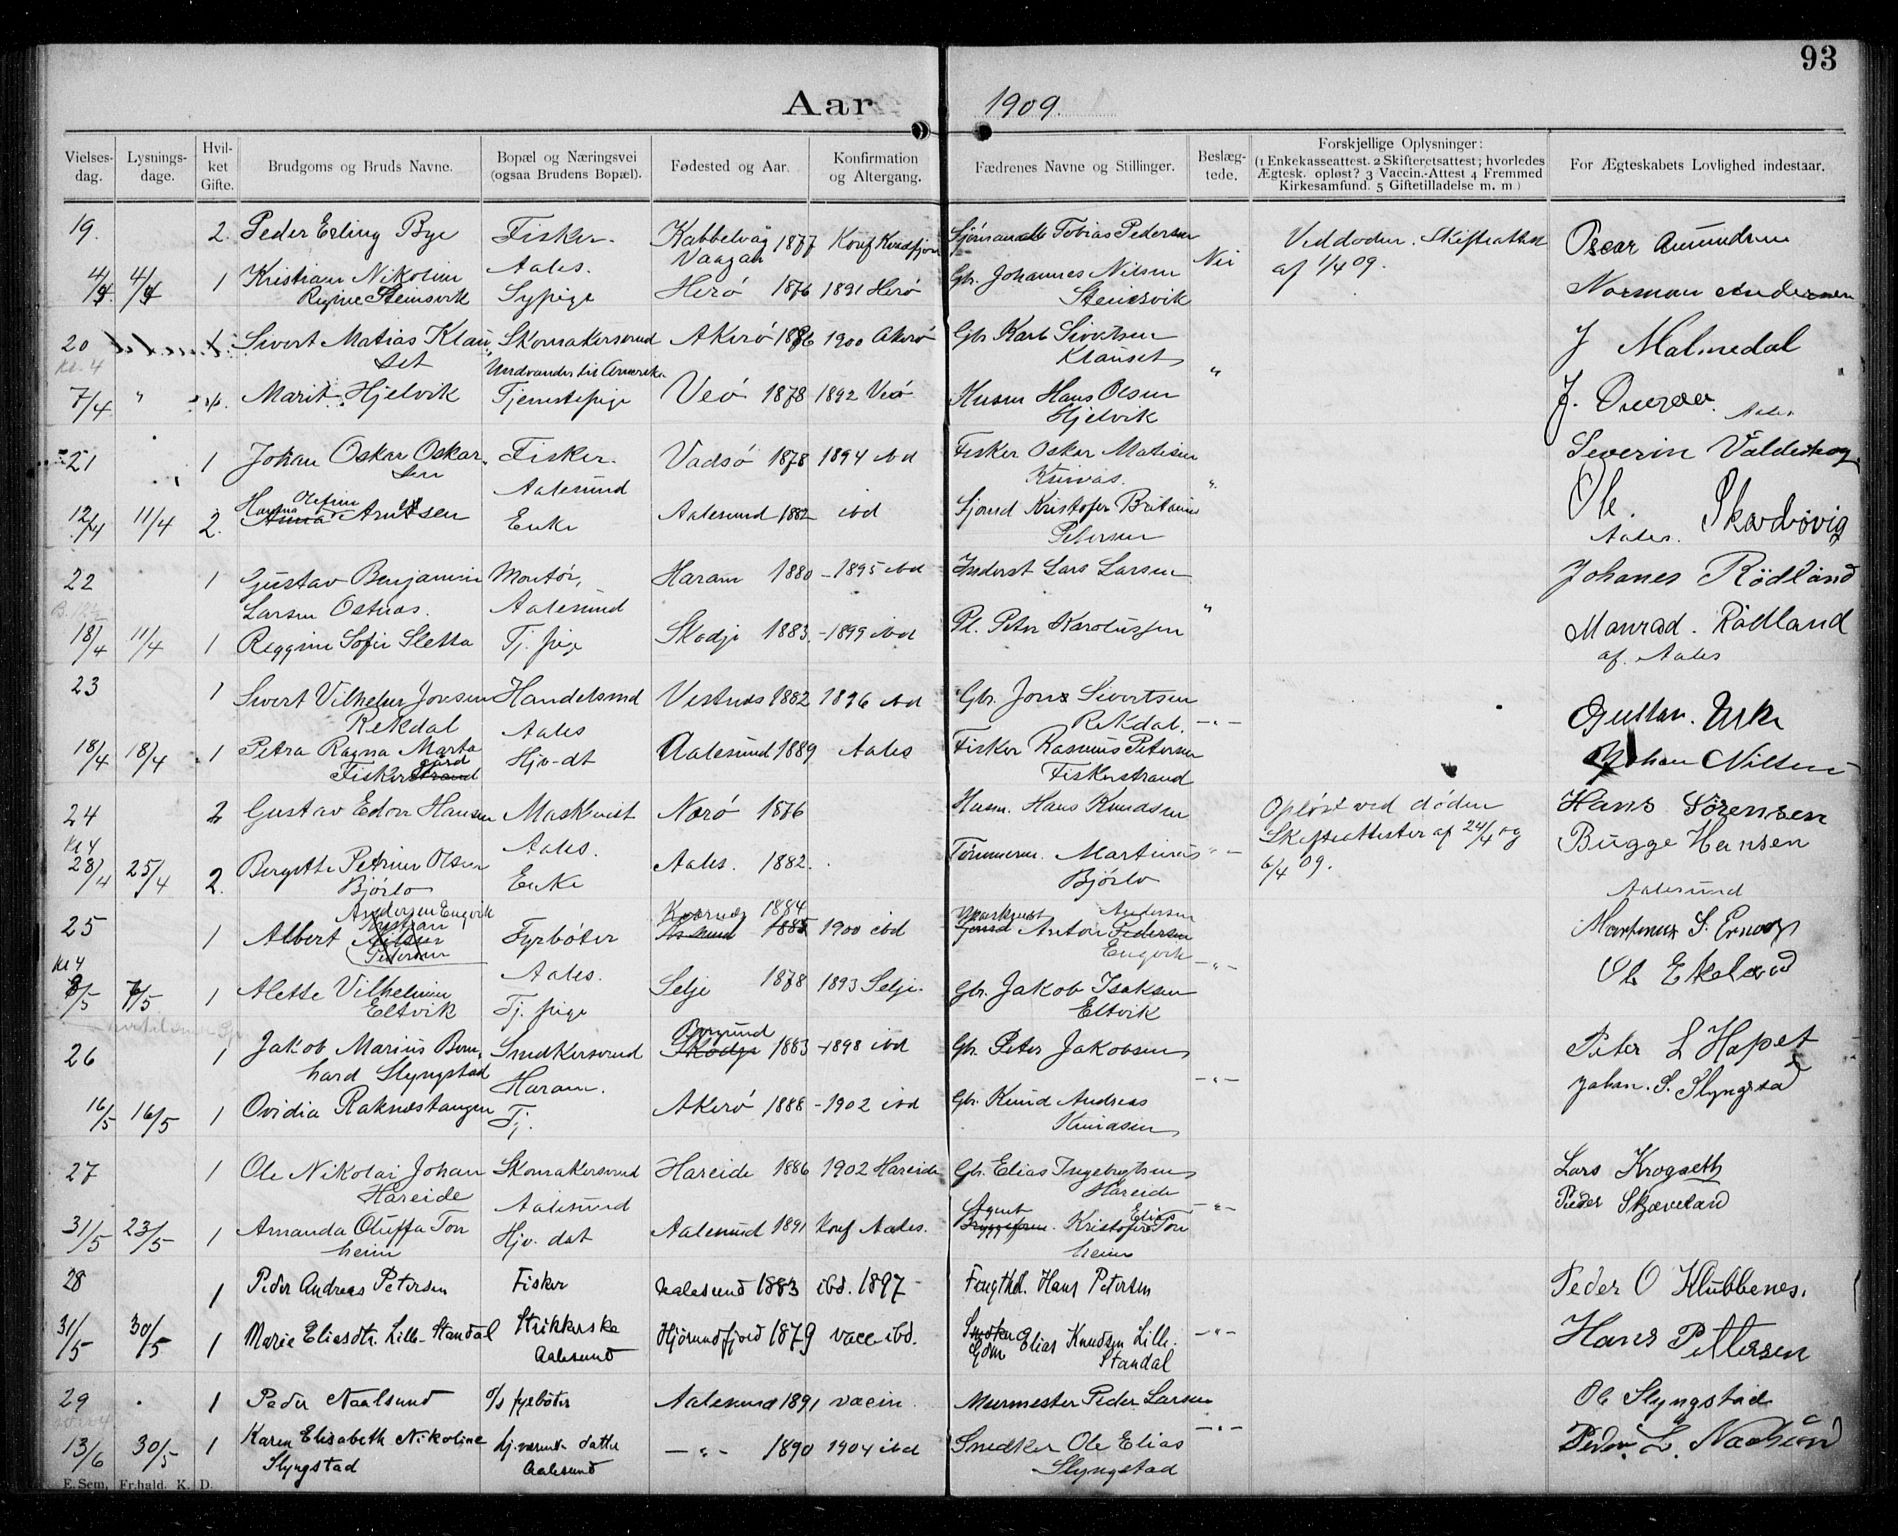 93
Aar 1909.
Vielses-dag. Lysnings-dage. Hvil-ket Gifte. Brudgoms og Bruds Navne. Bopæl og Næringsvei (ogsaa Brudens Bopæl). Fødested og Aar. Konfirmation og Altergang. Fædrenes Navne og Stillinger. Beslæg-tede. Forskjellige Oplysninger: (1 Enkekasseattest. 2 Skifteretsattest; hvorledes Ægtesk. opløst? 3 Vaccin.-Attest 4 Fremmed Kirkesamfund. 5 Giftetilladelse m. m) For Ægteskabets Lovlighed indestaar.
19. 2. Peder Erling Bye Fisker. Kabbelvåg Vaagan 1877 Konf Sjömand Tobias Pedersen Nei Ved døden. Skifteattest af 1/4 09. Oscar Amundsen
4/4 4/4 1 Kristiane Nikoline Aales. Sypige Herö 1876 1891 Herö Gbr. Johannes Nilsen Norman Andersen
Regine Steinsvik Steinsvik
20 Sivert Matias Klauset Skomakersvend Akerö 1886 1900 Akerö Gbr. Karl Sivertsen Klauset J Malmedal
Kl. 4 Undvandrer til Amerika "
7/4 " Marit Hjelvik Tjenestepige Veö 1878 1892 Veö Husm Hans Olsen Hjelvik J. Aales
21 1 Johan Oskar Oskarsen Fisker. Aalesund Vadsö 1878 1894 ibd Fisker Oskar Matisen " Severin Valderhaug.
12/4 11/4 2. Hanna Olefine Arntsen Enke Aalesund 1882 ibd Sjömd Kristofer Petersen Ole. Skarbövig Aales.
22 1 Gustav Benjamin Larsen Ostnes. Montör, Aalesund Haram 1880 - 1895 ibd Inderst Lars Larsen " Johanes Rödland
18/4 11/4 1 Reggine Sofie Sletta Tj. pige Skodje 1883. - 1899 ibd Pl. Peter Karolussen Monrad. Rödland af. Aales
23 1 Sivert Vilhelm Jonsen Rekdal Handelsmd Aales Vestnes 1882 1896 ibd Gbr. Jons Sivertsen Rekdal. -"- Gustav. Urke
18/4 18/4 1 Petra Ragna Marta Fiskerstrand gård Hjv-dt Aalesund 1889 Aales Fisker Rasmus Petersen Fiskerstrand Johan Nilsen
24 2 Gustav Edon Hansen Maskinist Aales. Nerö 1876 Husm. Hans Knudsen Opløst ved døden Skifteattester af 24/4 og 6/4 09. Hans Sörensen
Kl 4
28/4 25/4 2. Bergitte Petrine Olsen Bjórlo Enke Aales. 1882. Tömmerm. Martinus Bjórlo -"- Bugge Hansen Aalesund
25 1 Albert Andersen Engvik Nilsen Pedersen Fyrböter Aales. Kvernes 1884 1885 1900 ibd Maskinist Anton Andersen Pedersen Engvik -"- Martinus S. Ernæs
Kl 4
8/5 7/5 1 Alette Vilhelmine Eltvik Tj. pige Selje 1878 1893 Selje. Gbr. Jakob Isaksen Eltvik Ole Ekeland
26 1 Jakob Marius Bernhard Slyngstad Snedkersvend Haram. Borgund Skodje 1883 - 1898 ibd Gbr. Peter Jakobsen -"- Peter L Hapet
16/5 16/5 1 Ovidia Raknestangen Tj. Akerö 1888 - 1902 ibd Gbr. Knud Andreas Knudsen Johan. S. Slyngstad
27 1 Ole Nikolai Johan Hareide Skomakersvend Aalesund Hareide 1886 1902 Hareide Gbr. Elias Ingebrigtsen Hareide -"- Lars Krogseth Peder Skjæveland
31/5 23/5 1 Amanda Oluffa Tonheim Hjv. dat Aalesund 1891 Konf Aales. Agent Kristofer Elias Tonheim
28 1 Peder Andreas Petersen Fisker Aalesund 1883 ibd. 1897- Hans Petersen Peder O Klubbenes.
31/5 30/5 1 Marie Eliasdtr. Lille-Standal Strikkerske Aalesund Hjörundfjord 1879 vacc ibd. Snedker Gbm Elias Knudsen Lille-Standal -"- Hans Pettersen
29 1 Peder Naalsund d/s fyrböter Aalesund 1891 vaccin. Murmester Peder Larsen -"- Ole Slyngstad
13/6 30/5 1 Karen Elisabeth Nikoline Slyngstad hj.værende datter Aalesund -"- 1890 1904 ibd Snedker Ole Elias Slyngstad Peder L. Naalsund
E. Sem, Fr.hald. K. D.